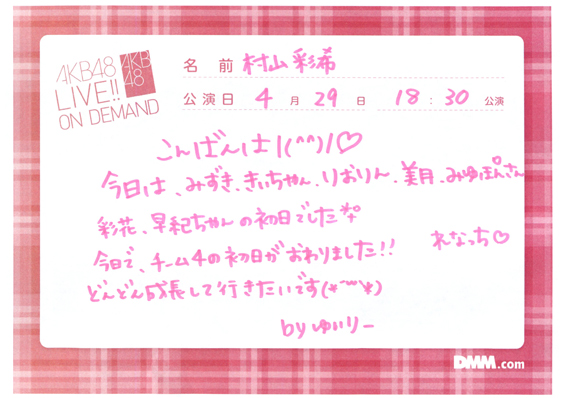 AKB48
LIVE!!
ON DEMAND
AKB
48
名 前 村山彩希
公演日 4 月 29 日 18:30 公演
こんばんは!(^^)!♡
今日は、みずき、きぃちゃん、りおりん、美月、みゆぽんさん
彩花、早紀ちゃんの初日でした
れなっち♡
今日で、チーム4の初日がおわりました!!
どんどん成長して行きたいです(*^^*)
by ゆいりー
DMM.com